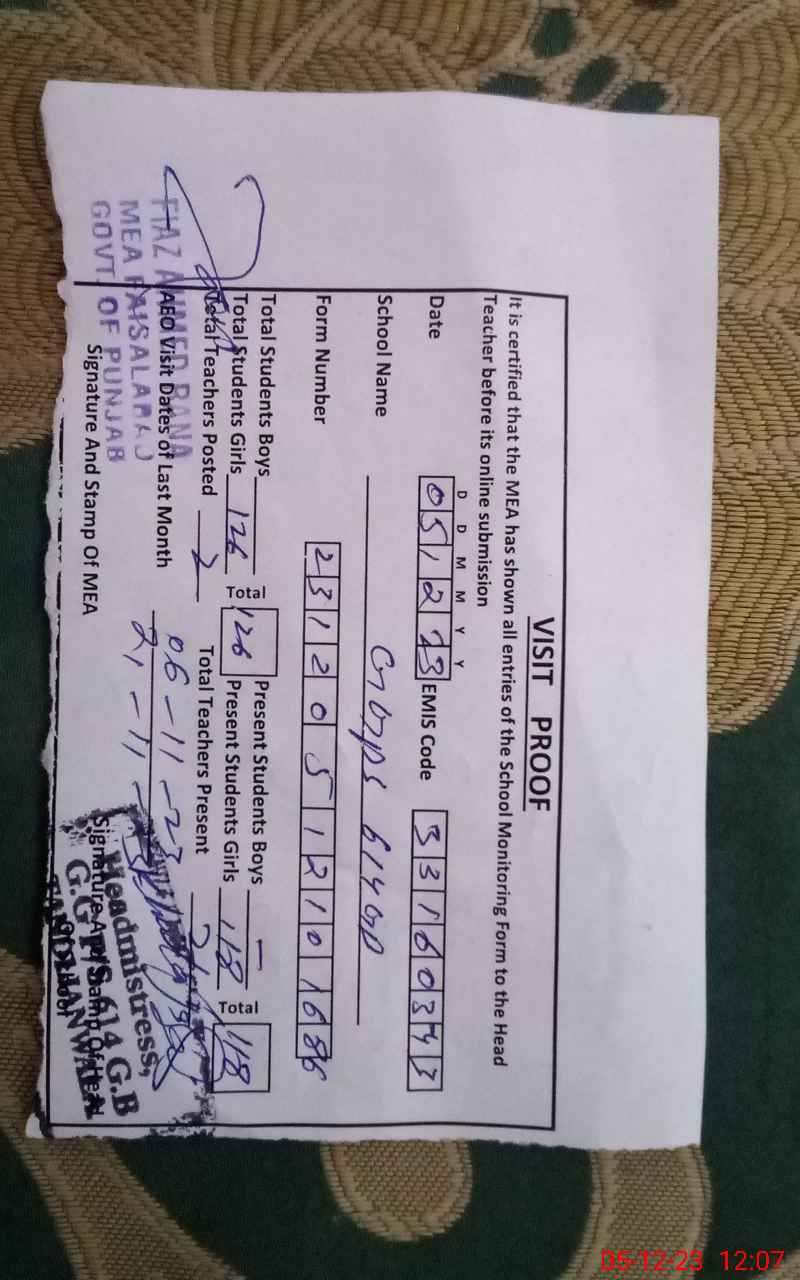 VISIT PROOF
It is certified that the MEA has shown all entries of the School Monitoring Form to the Head
Teacher before its online submission
D D M M Y Y
Date 051223 EMIS Code 33160343
School Name GGPS 614 GB
Form Number
Total Students Boys Present Students Boys –
Total Students Girls 126 Total 126 Present Students Girls 118 Total 118
Total Teachers Posted 2 Total Teachers Present 2
AEO Visit Dates of Last Month 06-11-23
21-11-
FIAZ AHMED RANA
MEA FAISALABAD
GOVT. OF PUNJAB
Signature And Stamp Of MEA
Signature And Stamp Of Head
Headmistress,
G.G P/S 614 G.B
05-12-23 12:07